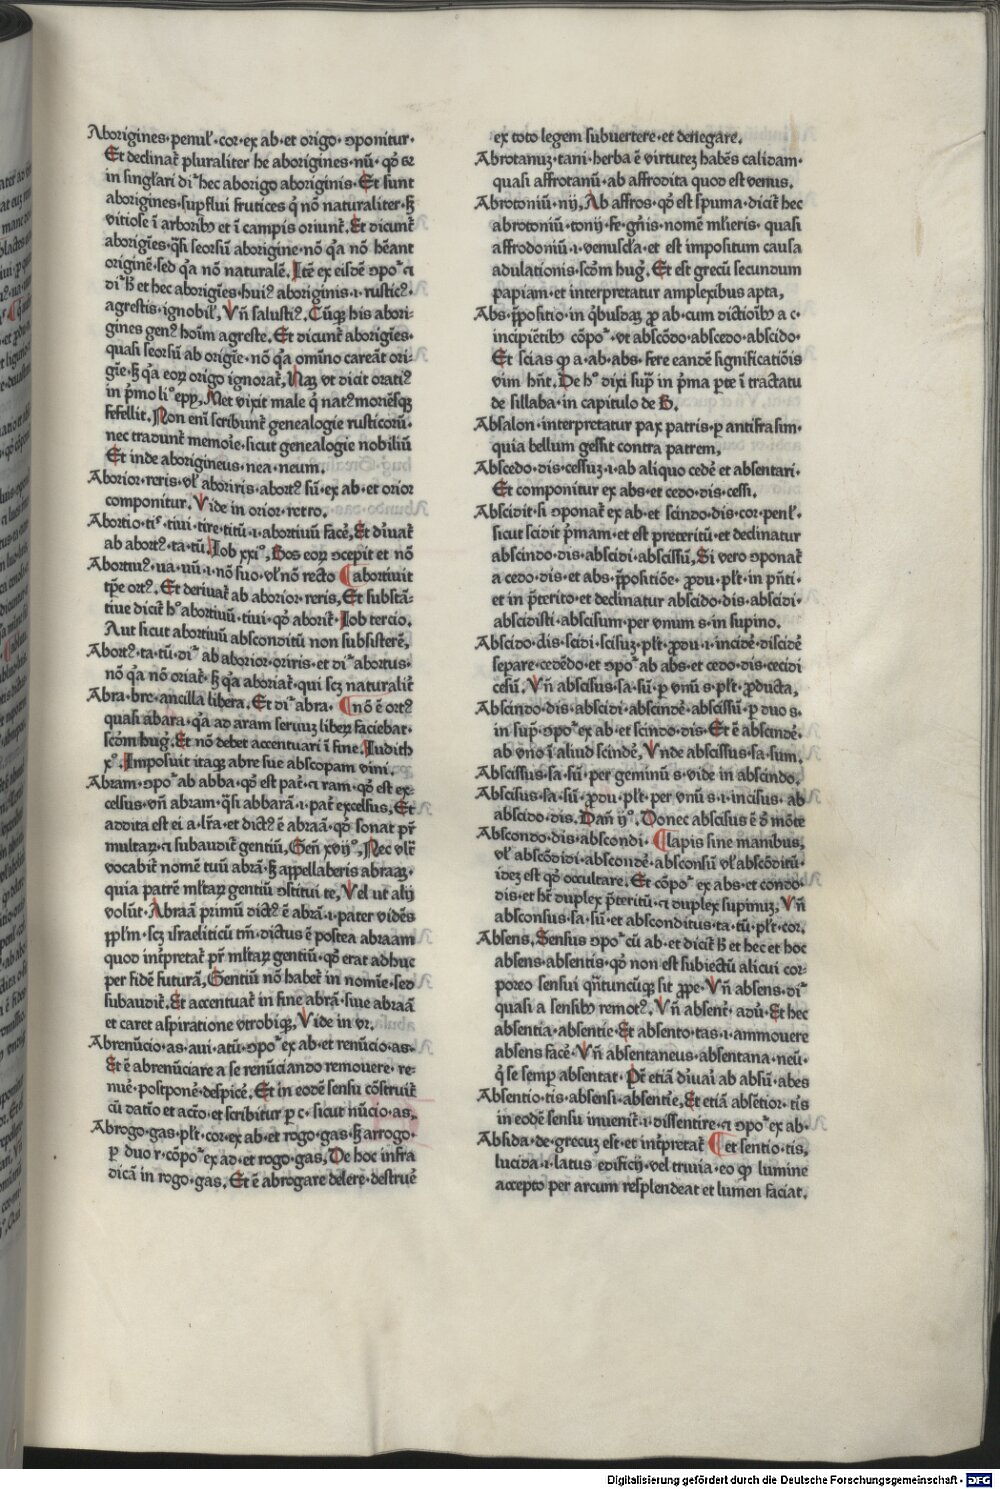 Aborigines·penul̄·cor·ex ab·et origo·ↄponitur·
Et declinat̄ pluraliter he aborigines·nū·qꝺ̓ sꝫ
in singl̓ari di͛ hec aborigo aboriginis·Et sunt
aborigines·suꝑflui frutices q̓ nō naturaliter·ꝫ
vitiose ī arborib᷒ et ī campis oriunt̄. Et dicunt̄
aborigīes·q̄si seorsū aborigine·nō q̓a nō hēant
originē·sed q̓a nō naturalē. Itē ex eisdē ↄpo͛·⁊
di͛ h̄ et hec aborigīes·hui᷒ aboriginis·i·rustic᷒·
agrestis·ignobil̓, Vn̄ salusti᷒. Cūqꝫ his abori⸗
gines gen᷒ hoīm agreste. Et dicunt̄ aborigīes·
quasi seorsū ab origīe·nō q̓a omīno careāt ori⸗
gīe·ꝫ q̓a eoꝝ origo ignorat̄, Naꝫ vt dicit orati᷒
in p̓mo li͛ epꝑ, Nec vixit male q̓ nat᷒ moriēsqꝫ
fefellit. Non enī scribunt̄ genealogie rusticorū·
nec tradunt̄ memoīe·sicut genealogie nobiliū
Et inde aborigineus·nea·neum.
Aborior·reris·vl̓ aboriris·abort᷒ sū·ex ab·et orior
componitur. Vide in orior·retro.
Abortio·ti͛·tiui·tire·titū·i·abortiuū facē, Et d̓iuat̄
ab abort᷒·ta·tū. Iob xxi͛, Bos eoꝝ ↄcepit et nō
Abortiu᷒·ua·uū·i·nō suo·vl̓ nō recto ¶abortiuit
tp̄e ort᷒. Et deriuat̄ ab aborior·reris, Et substā⸗
tiue dicit̄ h͛ abortiuū·tiui·qꝺ̓ aborit̄·Iob tercio.
Aut sicut abortiuū absconditū non subsisterē,
Abort᷒·ta·tū·di͛ ab aborior·oriris·et di͛ abortus·
nō q̓a nō oriat̄·ꝫ q̓a aboriat̄·qui scꝫ naturalit̄
Abra·bre·ancilla libera. Et di͛ abra· ¶nō ē ort᷒
quasi abara·q̓a ad aram seruiꝫ libeꝝ faciebat·
scd̓m hug̓. Et nō debet accentuari ī fine. Iudith
x͛. Imposuit itaqꝫ abre sue abscopam vini.
Abram·ↄpo͛ ab abba·qꝺ̓ est pat̄·⁊ ram·qꝺ̓ est ex⸗
celsus·vn̄ abram·q̄si abbarā·i·pat̄ excelsus, Et
addita est ei a·l̄ra·et dict᷒ ē abraā·qꝺ̓ sonat pr̄
multaꝝ·⁊ subaudit̄ gentiū, Gen̄ xvij͛, Nec vlt̄
vocabit̄ nomē tuū abrā·ꝫ appellaberis abraaꝫ·
quia patrē ml̓taꝝ gentiū ↄstitui te, Vel ut alij
volūt·Abraā primū dict᷒ ē abrā·i·pater vidēs
ꝑpl̓m·scꝫ israeliticū tm̄·dictus ē postea abraam
quod int̓pretat̄ pr̄ ml̓taꝝ gentiū·qꝺ̓ erat adhuc
per fidē futurā, Gentiū nō habet̄ in nomīe·sed
subaudit̄. Et accentuat̄ in fine abrā·siue abraā
et caret aspiratione vtrobiqꝫ, Vide in vr.
Abrenūcio·as·aui·atū·ↄpo͛ ex ab·et renūcio·as·
Et ē abrenūciare a se renūciando remouere·re⸗
nuē·postponē·despicē. Et in eodē sensu cōstruit̄
cū datīo et acc̄o·et scribitur ꝑ c·sicut nūcio·as.
Abrogo·gas·pl̄t·cor·ex ab·et rogo·gas·ꝫ arrogo·
ꝑ duo r·cōpo͛ ex ad·et rogo·gas, De hoc infra
dicā in rogo·gas. Et ē abrogare delere·destruē
ex toto legem subuertere·et denegare.
Abrotanuꝫ·tani·herba ē virtuteꝫ habēs calidam·
quasi affrotanū·ab affrodita quod est venus.
Abrotoniū·nij. Ab affros·qꝺ̓ est spuma·dicit̄ hec
abrotoniū·tonij·fe·gn̄is·nomē ml̓ieris·quasi
affrodoniū·i·venuscl̓a·et est impositum causa
adulationis·scd̓m hug̓. Et est grecū secundum
papiam·et interpretatur amplexibus apta,
Abs·p̄positio·in q̓busdaꝫ ꝓ ab·cum dictioīb᷒ a c·
incipiētib᷒ cōpo͛·vt abscōdo·abscedo·abscido·
Et scias ꝙ a·ab·abs·fere eandē significatiōis
vim hn̄t. De h͛ dixi sup̄ in p̓ma ꝑte ī tractatu
de sillaba·in capitulo de B.
Absalon·interpretatur pax patris·ꝑ antifrasim·
quia bellum gessit contra patrem,
Abscedo·dis·cessuꝫ·i·ab aliquo cedē et absentari·
Et componitur ex abs·et cedo·dis·cessi.
Abscidit·si ↄponat̄ ex ab·et scindo·dis·cor·penl̓·
sicut scidit p̓mam·et est preteritū·et declinatur
abscindo·dis·abscidi·abscissū, Si vero ↄponat̄
a cedo·dis·et abs·p̄positiōe·ꝓdu·pl̄t·in pn̄ti·
et in p̄terito·et declinatur abscido·dis·abscidi·
abscidisti·abscisum·per vnum s·in supino.
Abscido·dis·scidi·scisuꝫ·pl̄t·ꝓdu·i·incidē·discidē
separe·cedēdo·et ↄpo͛ ab abs·et cedo·dis·cecidi
cesū. Vn̄ abscisus·sa·sū·ꝑ vnū s·pl̄t·ꝓducta,
Abscindo·dis·abscidi·abscindē·abscissū·ꝑ duo s.
in sup̄·ↄpo͛ ex ab·et scindo·dis·Et ē abscindē·
ab vno ī aliud scindē, Vnde abscissus·sa·sum.
Abscissus·sa·sū·per geminū s·vide in abscindo.
Abscisus·sa·sū·ꝓdu·pl̄t·per vnū s·i·incisus·ab
abscido·dis. Dan̄ ij͛. Donec abscisus ē d̓ mōte
Abscondo·dis·abscondi· ¶lapis sine manibus,
vl̓ abscōdidi·abscondē·absconsū vl̓ abscōditū·
ideꝫ est qꝺ̓ occultare. Et cōpo͛ ex abs·et condo·
dis·et ht̄ duplex p̄teritū·⁊ duplex supinuꝫ, Vn̄
absconsus·sa·sū·et absconditus·ta·tū·pl̄t·cor.
Absens, Sensus ↄpo͛ cū ab·et dicit̄ h̄ et hec et hoc
absens·absentis·qꝺ̓ non est subiectū alicui cor⸗
poreo sensui qn̄tuncūqꝫ sit ꝓpe·Vn̄ absens·di͛
quasi a sensib᷒ remot᷒. Vn̄ absent̄·adū·Et hec
absentia·absentie·Et absento·tas·i·ammouere
absens facē·Vn̄ absentaneus·absentana·neū·
q̓ se semꝑ absentat·P̄t etiā d̓iuari ab absū·abes
Absentio·tis·absensi·absentie, Et etiā absētior·tis
in eodē sensu inuenit̄·i·dissentire·⁊ ↄpo͛ ex ab·
Absida·de·grecuꝫ est·et int̓pretat̄ ¶et sentio·tis,
lucida·i·latus edificij·vel truia·eo ꝙ lumine
accepto per arcum resplendeat et lumen faciat.
Digitalisierung gefördert durch die Deutsche Forschungsgemeinschaft - DFG